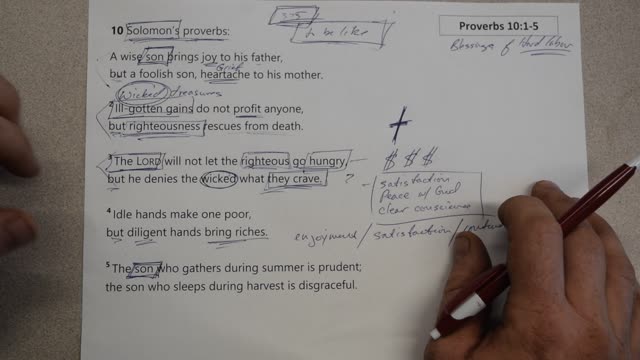 Proverbs 10:1-5
Blessings of Hard labor
10 Solomon's proverbs:
A wise son brings joy to his father,
Grief
but a foolish son, heartache to his mother.
Wicked treasures
2 Ill-gotten gains do not profit anyone,
but righteousness rescues from death.
3 The LORD will not let the righteous go hungry,
$ $ $
but he denies the wicked what they crave. ?
satisfaction
Peace w/ God
clear conscience
4 Idle hands make one poor,
but diligent hands bring riches.
enjoyment / satisfaction /
5 The son who gathers during summer is prudent;
the son who sleeps during harvest is disgraceful.